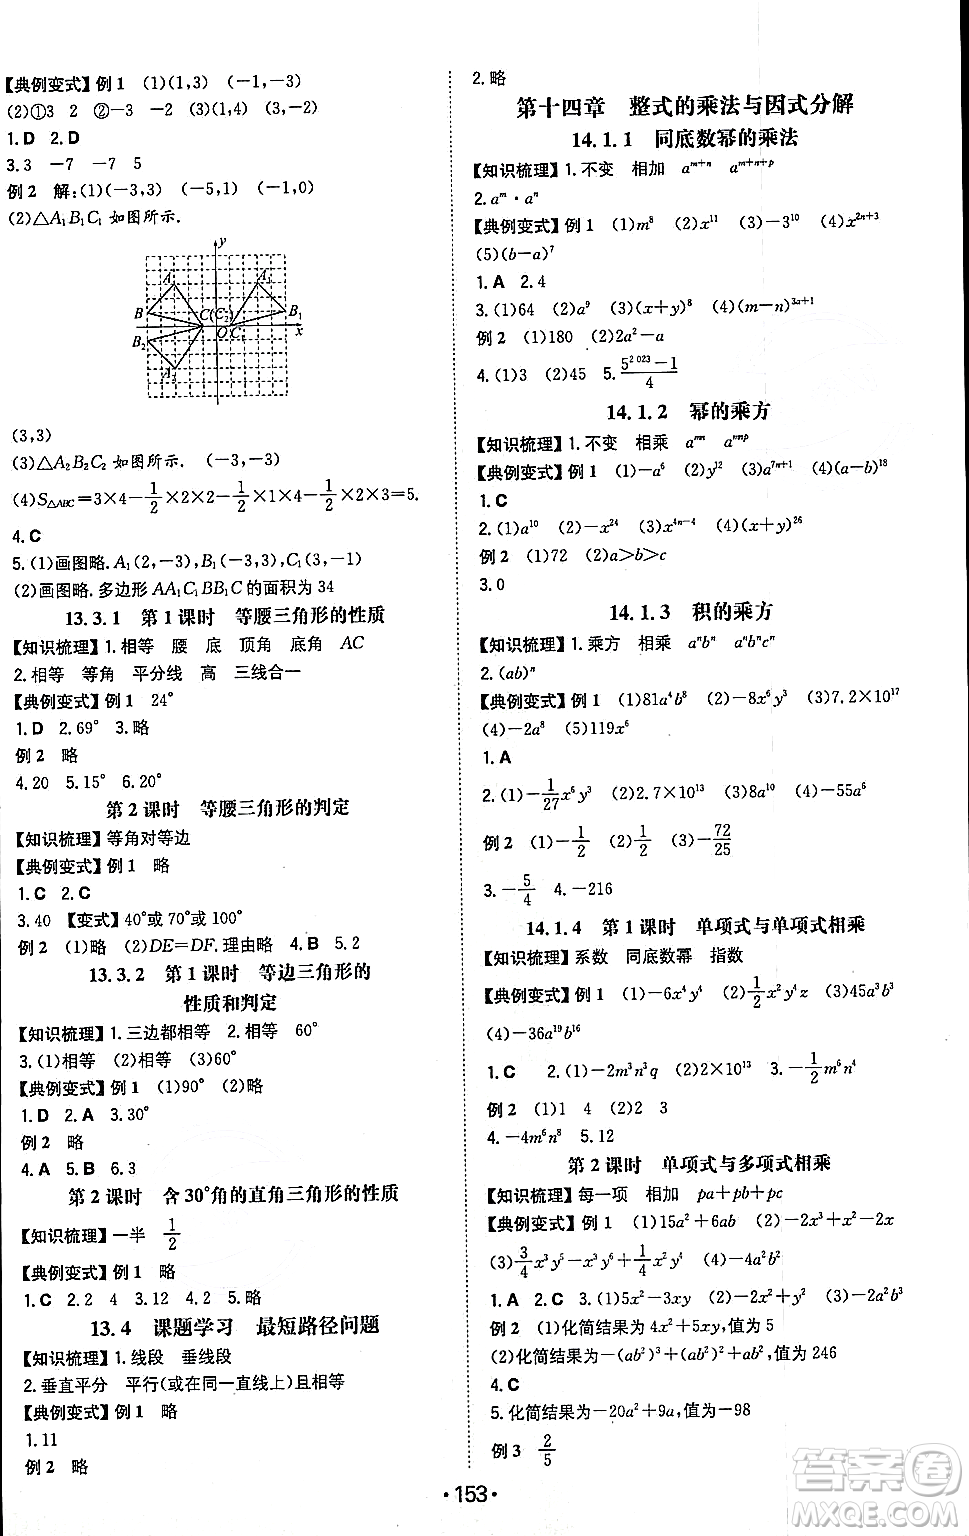 【典例变式】例1 (1)(1,3) (-1,-3)
(2)①3 2 ②-3 -2 (3)-3
1.D 2.D
3.3 -7 -7 5
例2 解:(1)(-3,3) (-5,1) (-1,0)
(2)△A₁B₁C₁ 如图所示.
y
B
B₁
B₂
C(C₂)
O
C₁
x
(3,3)
(3)△A₂B₂C₂ 如图所示. (-3,-3)
(4)S△ABC=3×4-1/2×2×2-1/2×1×4-1/2×2×3=5.
4.C
5.(1)画图略.A₁(2,-3),B₁(-3,-3),C₁(3,-1)
(2)画图略.多边形AA₁C₁BB₁C的面积为34
13.3.1 第1课时 等腰三角形的性质
【知识梳理】1.相等 腰 底 顶角 底角 AC
2.相等 等角 平分线 高 三线合一
【典例变式】例1 24°
1.D 2.69° 3.略
例2 略
4.20 5.15° 6.20°
第2课时 等腰三角形的判定
【知识梳理】等角对等边
【典例变式】例1 略
1.C 2.C
3.40 【变式】40°或70°或100°
例2 (1)略 (2)DE=DF.理由略 4.B 5.2
13.3.2 第1课时 等边三角形的
性质和判定
【知识梳理】1.三边都相等 2.相等 60°
3.(1)相等 (2)相等 (3)60°
【典例变式】例1 (1)90° (2)略
1.D 2.A 3.30°
例2 略
4.A 5.B 6.3
第2课时 含30°角的直角三角形的性质
【知识梳理】一半 1/2
【典例变式】例1 略
1.C 2.2 4 3.12 4.2 5.略
13.4 课题学习 最短路径问题
【知识梳理】1.线段 垂线段
2.垂直平分 平行(或在同一直线上)且相等
【典例变式】例1 略
1.11
例2 略
2.略
第十四章 整式的乘法与因式分解
14.1.1 同底数幂的乘法
【知识梳理】1.不变 相加 aᵐ⁺ⁿ aᵐ⁺ⁿ⁺ᵖ
2.aᵐ·aⁿ
【典例变式】例1 (1)m⁸ (2)x¹¹ (3)-3¹⁰ (4)x²ⁿ⁺³
(5)(b-a)⁷
1.A 2.4
3.(1)64 (2)a⁹ (3)(x+y)⁸ (4)(m-n)³ᵃ⁺¹
例2 (1)180 (2)2a²-a
4.(1)3 (2)45 5.(5²⁰²³-1)/4
14.1.2 幂的乘方
【知识梳理】1.不变 相乘 aᵐⁿ aᵐⁿᵖ
【典例变式】例1 (1)-a⁶ (2)y¹² (3)a⁷ⁿ⁺¹ (4)(a-b)¹⁸
1.C
2.(1)a¹⁰ (2)-x²⁴ (3)x⁴ⁿ⁻⁴ (4)(x+y)²⁶
例2 (1)72 (2)a>b>c
3.0
14.1.3 积的乘方
【知识梳理】1.乘方 相乘 aⁿbⁿ aⁿbⁿcⁿ
2.(ab)ⁿ
【典例变式】例1 (1)81a⁴b⁸ (2)-8x⁶y³ (3)7.2×10¹⁷
(4)-2a⁸ (5)119x⁶
1.A
2.(1)-1/27x⁶y³ (2)2.7×10¹³ (3)8a¹⁰ (4)-55a⁶
例2 (1)-1/2 (2)1/2 (3)-72/25
3.-5/4 4.-216
14.1.4 第1课时 单项式与单项式相乘
【知识梳理】系数 同底数幂 指数
【典例变式】例1 (1)-6x⁴y⁴ (2)1/2x²y⁴z (3)45a³b³
(4)-36a¹⁹b¹⁶
1.C 2.(1)-2m³n³q (2)2×10¹³ 3.-1/2m⁶n⁴
例2 (1)1 4 (2)2 3
4.-4m⁶n⁸ 5.12
第2课时 单项式与多项式相乘
【知识梳理】每一项 相加 pa+pb+pc
【典例变式】例1 (1)15a²+6ab (2)-2x³+x²-2x
(3)3/4x³y⁵-x³y⁶+1/4x²y⁴ (4)-4a²b²
1.A 2.C 3.(1)5x²-3xy (2)-x²+y² (3)-2a²b³
例2 (1)化简结果为4x²+5xy,值为5
(2)化简结果为-(ab²)³+(ab²)²+ab²,值为246
4.C
5.化简结果为-20a²+9a,值为-98
例3 2/5
·153·
答案圈
MXQE.COM